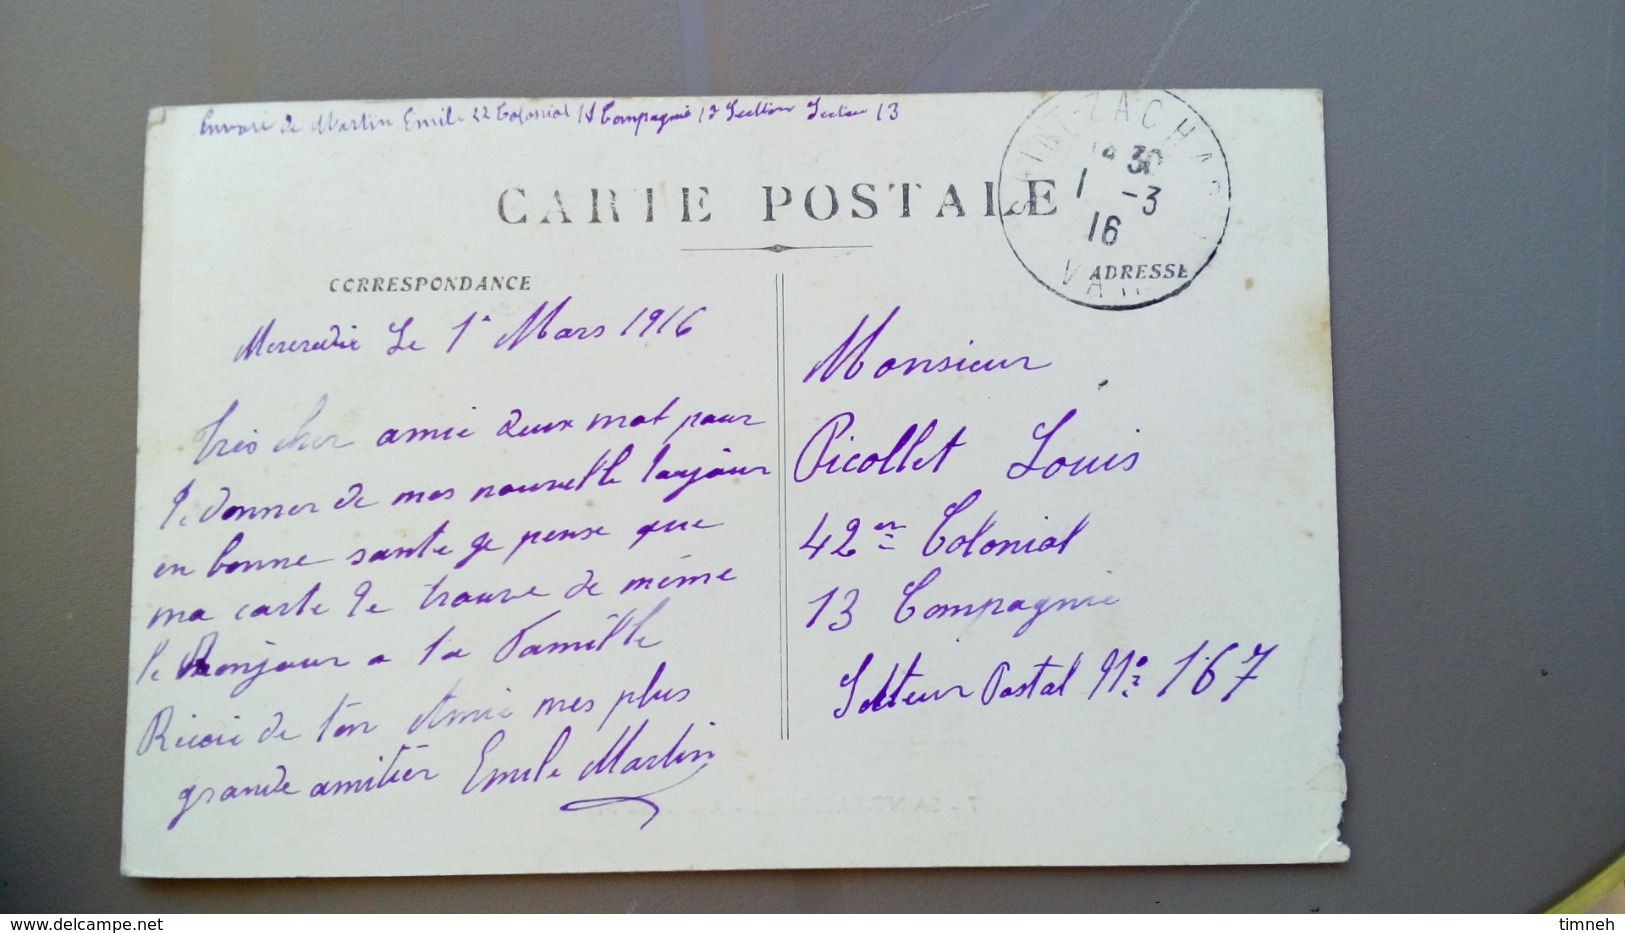 Envoi de Martin Emile 22 Colonial 11 Compagnie 12 Section Secteur 13
CARTE POSTALE
SAINT-ZACHAR
30
1 -3
16
VAR
CORRESPONDANCE
ADRESSE
Mercredi Le 1e Mars 1916
Très cher amie deux mot pour
te donner de mes nouvelle toujour
en bonne sante je pense que
ma carte te trouve de même
le Bonjour a ta Famille
Recoi de ton Amie mes plus
grande amitier Emile Martin
Monsieur
Picollet Louis
42em Colonial
13 Compagnie
Secteur Postal No 167
timneh